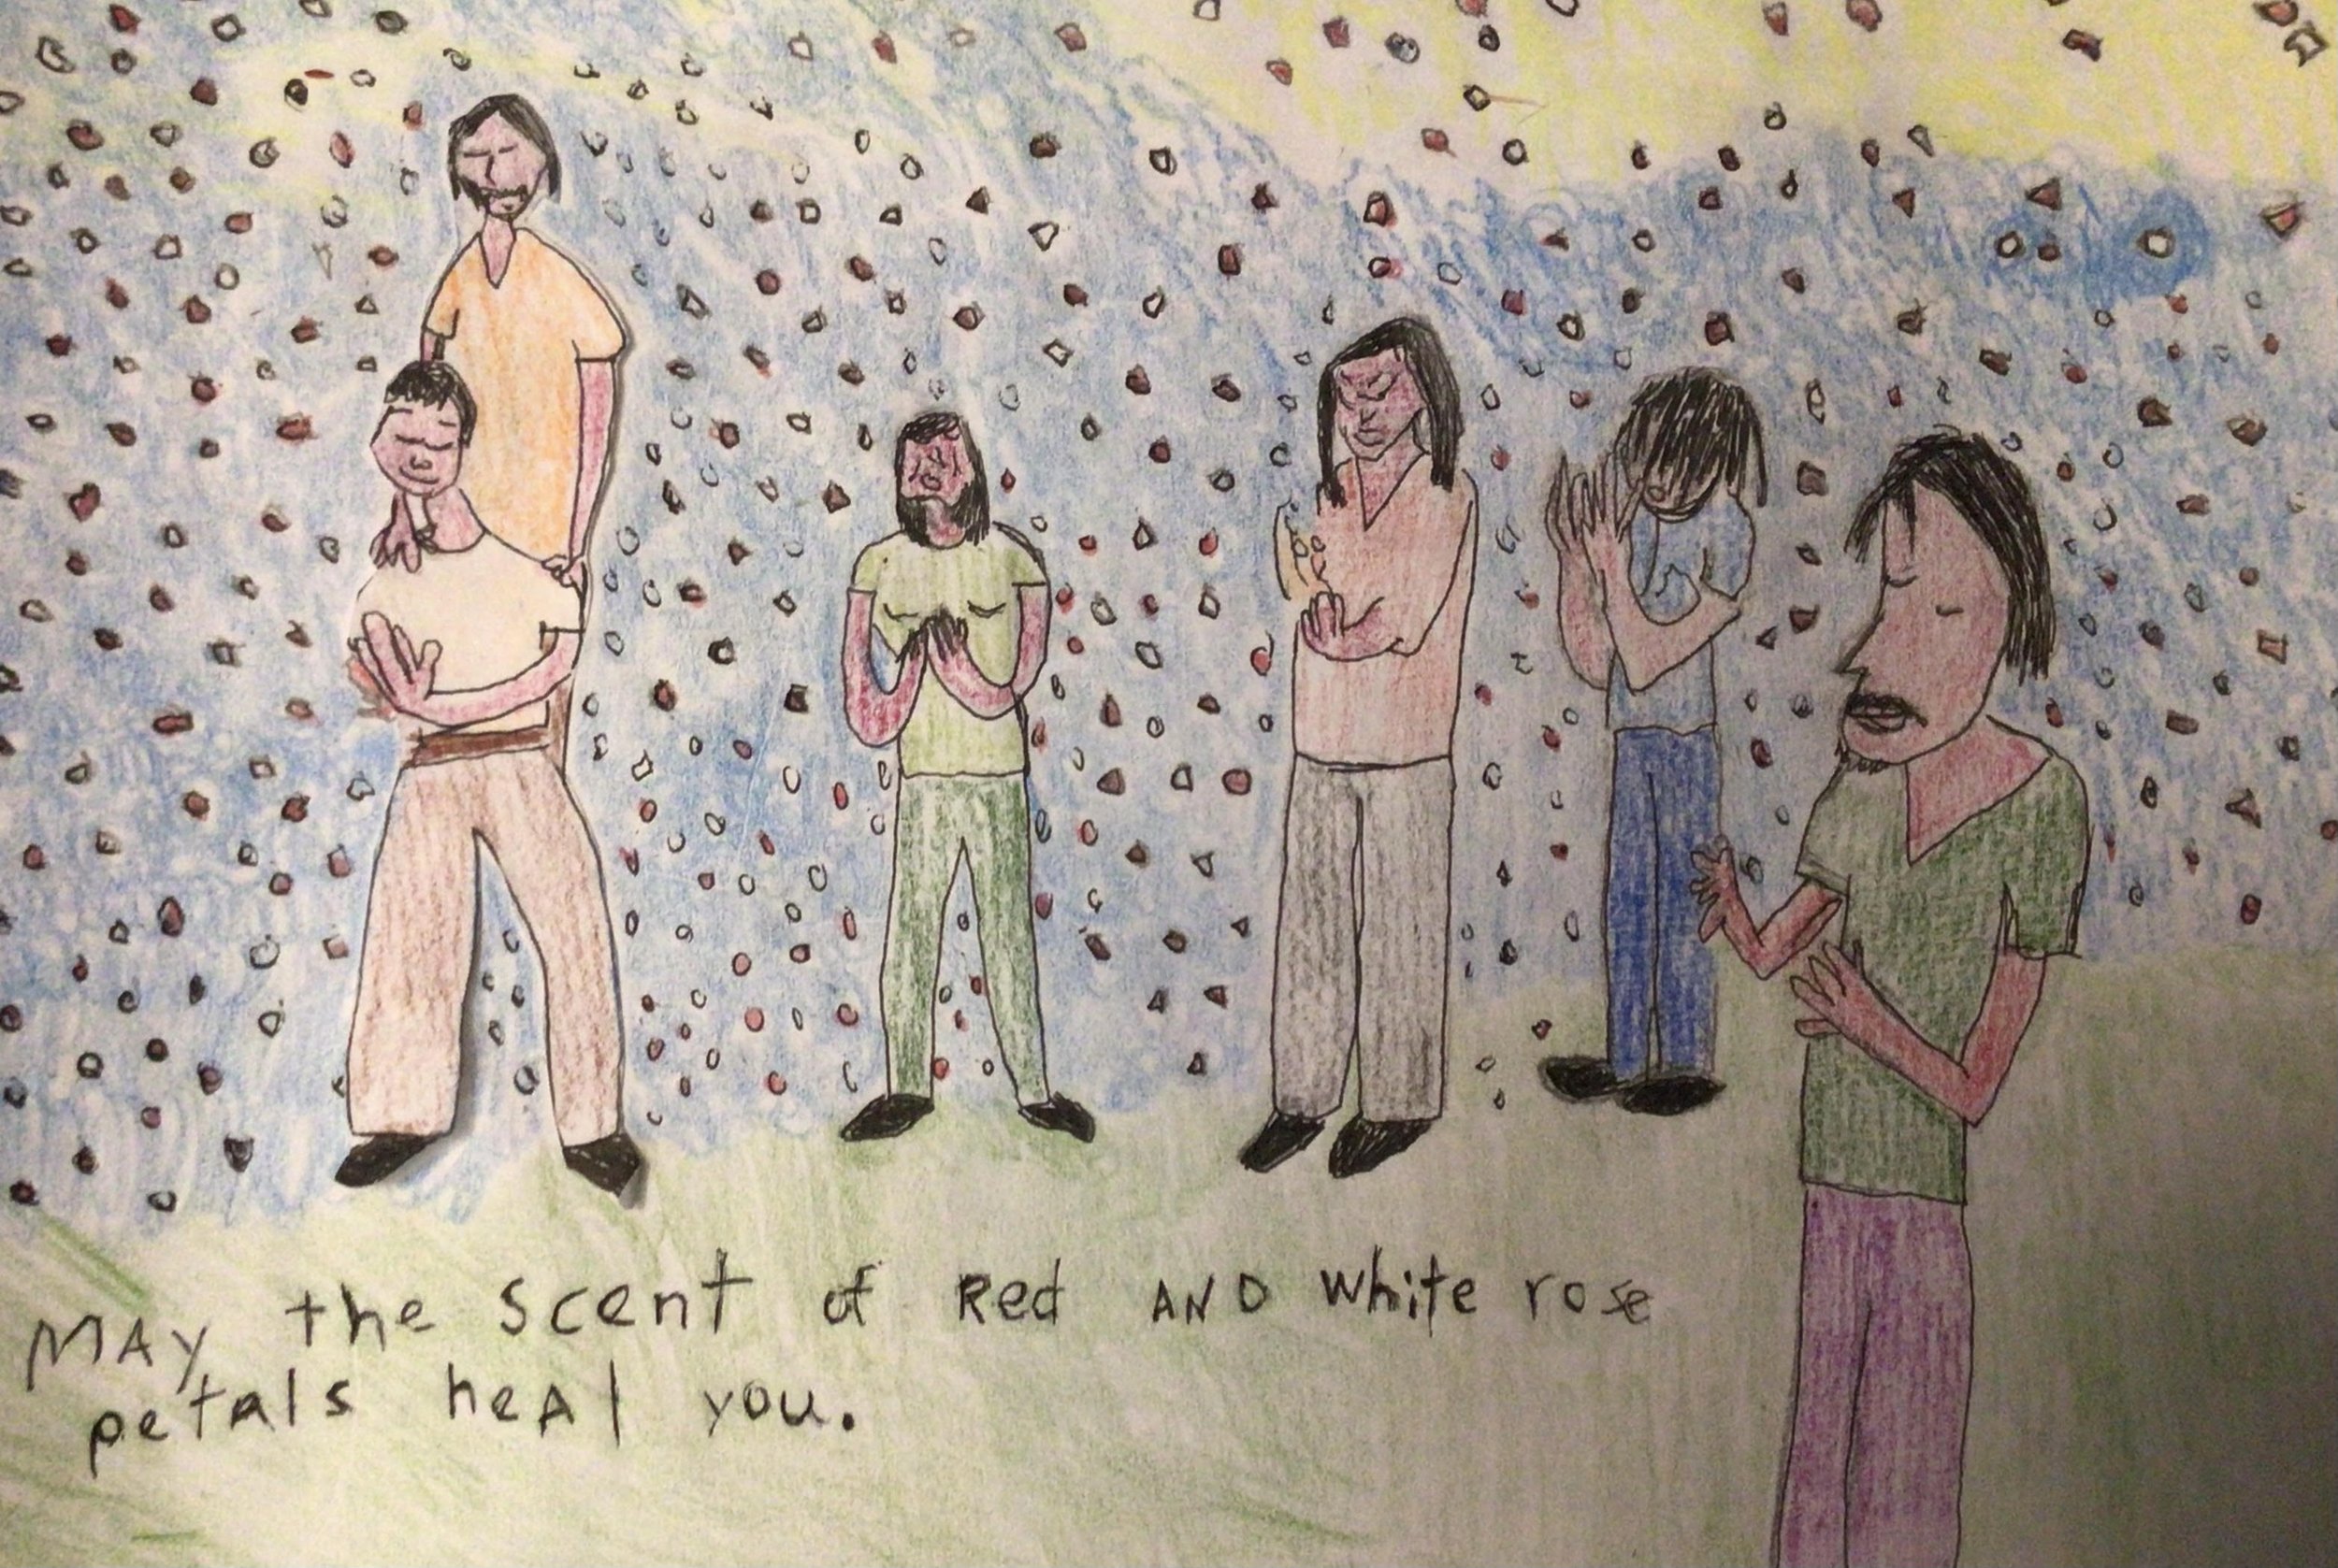 MAY the scent of Red AND white rose
petals heAl you.